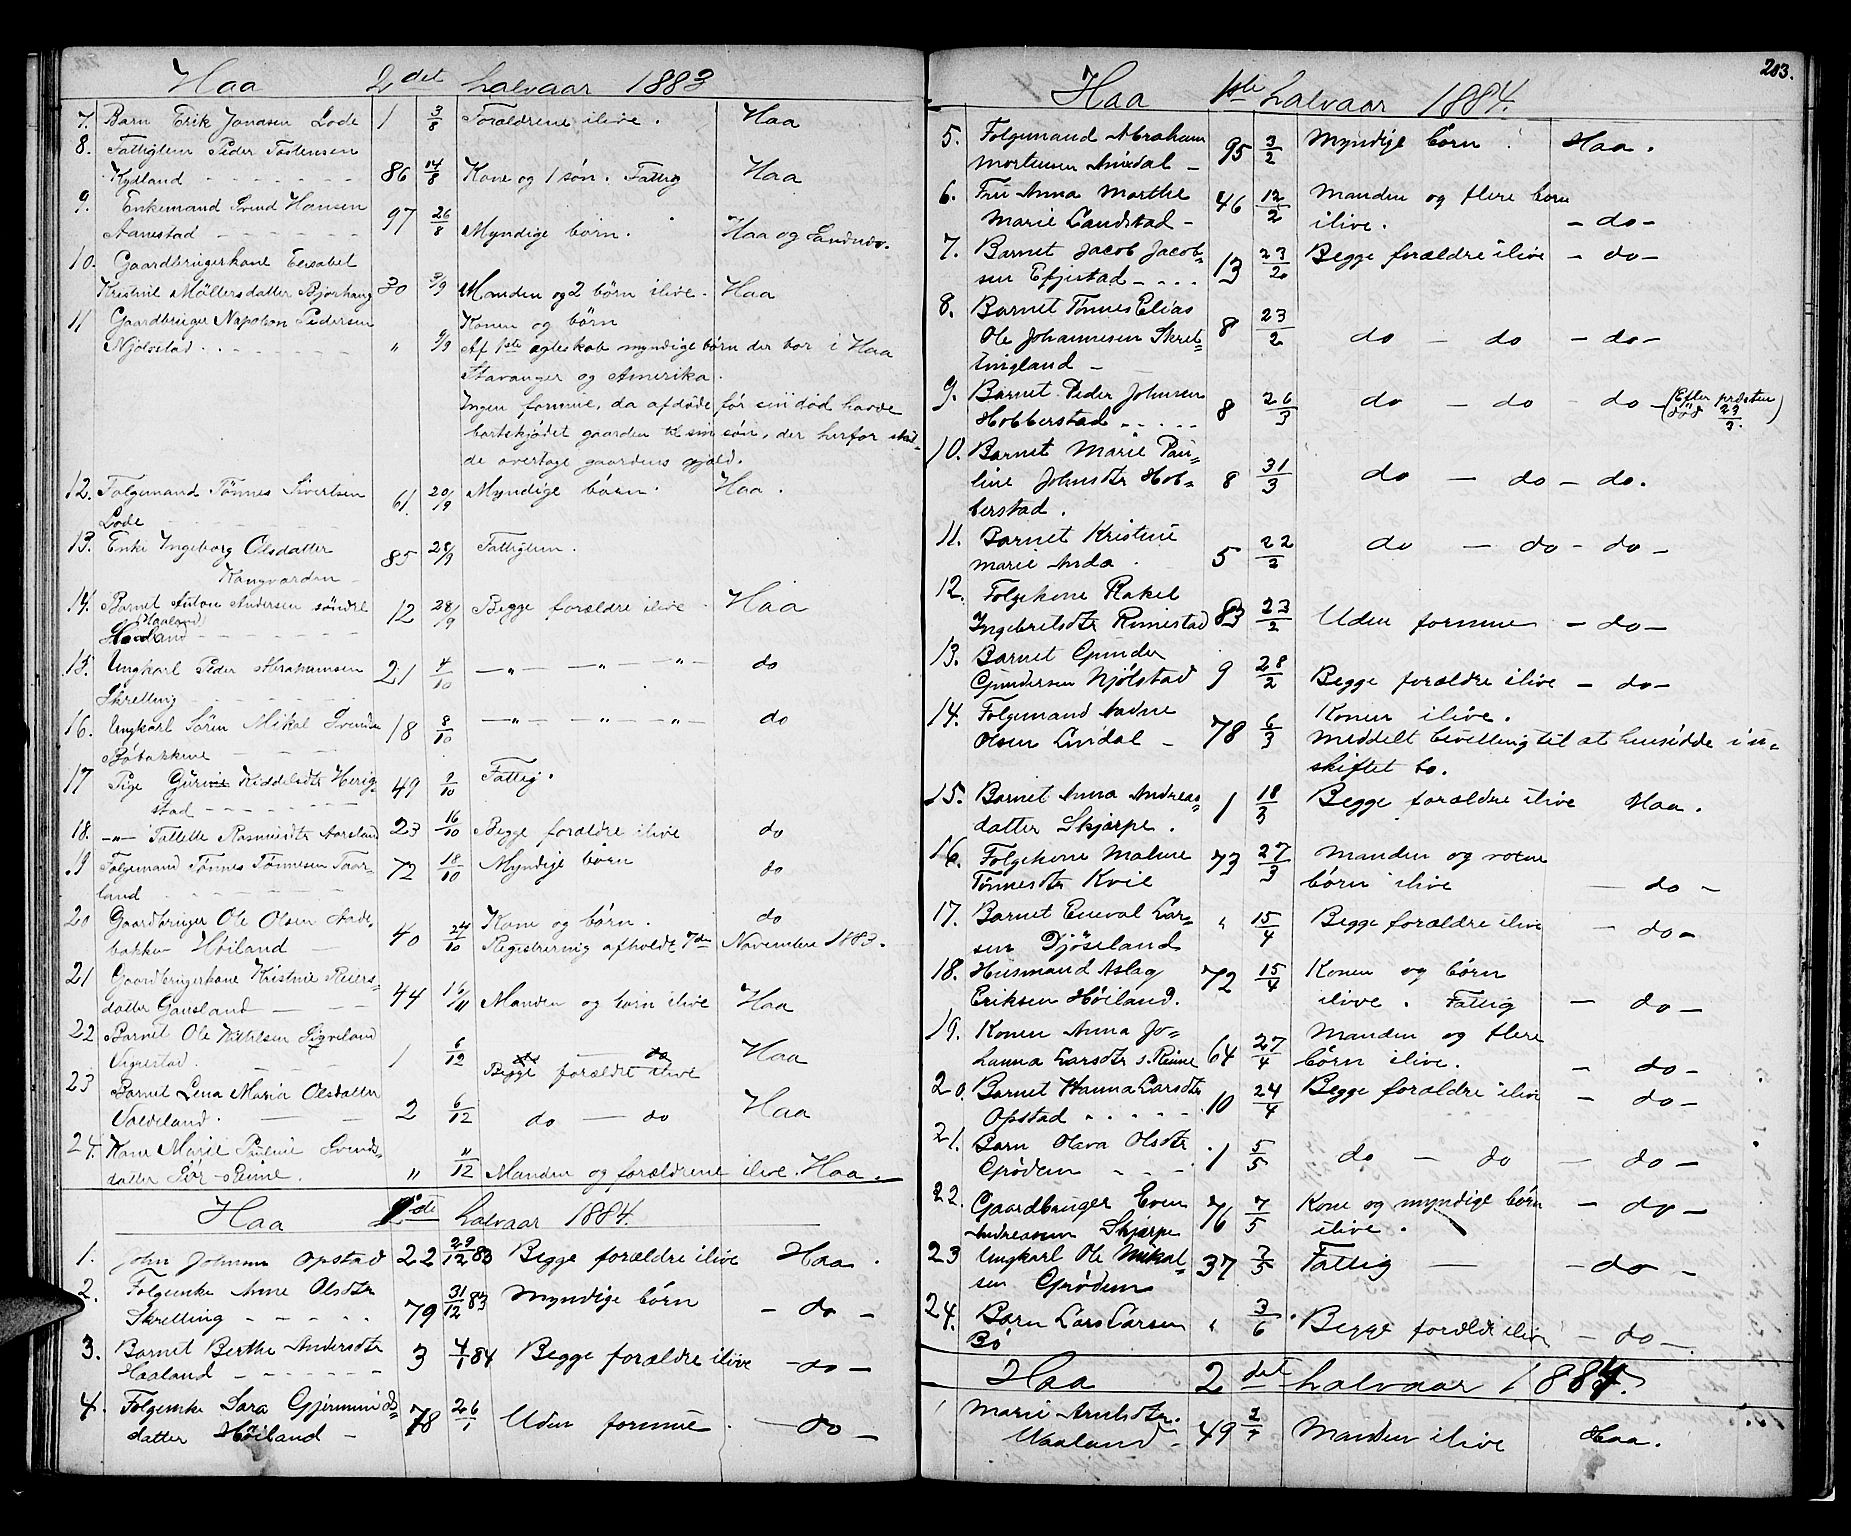 Haa 2det halvaar 1883
7. Barn Erik Jonasen Lode 1 3/8 Forældrene ilive. Haa
8. Fattiglem Peder Tostensen
Kydland 86 14/8 Kone og 1 søn. Fattig Haa
9. Enkemand Svend Hansen
Aanestad 97 26/8 Myndige børn. Haa og
10. Gaardbrugerkone
Kristine Møllersdatter Bjorhaug 30 3/9 Manden og 2 børn ilive. Haa
11 Gaardbruger Napoleon Pedersen Konen og børn
Njolstad " 9/9 Af 1ste ægteskab myndige børn der bor i Haa
Stavanger og Amerika.
Ingen formue, da afdøde før sin død havde
bortskjødet gaarden til sin søn, der herfor skul-
de overtage gaardens gjæld.
12. Folgemand Tønnes Sivertsen 61. 20/9 Myndige børn. Haa.
Lode
13. Enke Ingeborg Olsdatter 85 28/9 Fattiglem.
14. Barnet Anton Andersen søndre 12 28/9 Begge forældre ilive. Haa
Haaland
15. Ungkarl Peder Abrahamsen 21 4/10 — " — " — " — do
Skretting
16. Ungkarl Søren Mikal Svends 18 8/10 — " — " — " — do
17 Pige Kiddelsdtr Herig- 49 9/10 Fattig.
stad
18. — " — Tallette Rasmusdtr Aarsland 23 16/10 Begge forældre ilive do
19 Folgemand Tønnes Tønnesen Taar- 72 18/10 Myndige børn do
land
20 Gaardbruger Ole Olsen Aade- Kone og børn. do
bakken Høiland 40 24/10 Registrering afholdt 7de Novembre 1883.
21 Gaardbrugerkone Kristine Reiers-
datter Gausland 44 16/11 Manden og børn ilive Haa
22 Barnet Ole Sigveland
1 6/12 Begge forældre ilive Haa
23 Barnet Lena Maria Olsdatter
2 6/12 do — do Haa
24. Kone Marie Pauline Svends-
datter Sør-Reime. " 11/12 Manden og forældrene ilive. Haa.
Haa 1ste halvaar 1884.
1. John Johnsen Opstad 22 29/12 83 Begge forældre ilive Haa.
2. Folgeenke Anne Olsdtr
Skretting 79 31/12 83 Myndige børn — do —
3. Barnet Berthe Andersdtr
Haaland 3 4/1 84 Begge forældre ilive — do —
4. Folgeenke Sara
datter Høiland — 78 26/1 Uden formue. — do —
203.
Haa 1ste halvaar 1884.
5. Folgemand Abraham
Mortensen Aniedal — 95 3/2 Myndige børn. Haa.
6. Fru Anna Marthe 46 12/2 Manden og flere børn
Marie Landstad — ilive. — do —
7. Barnet Jacob Jacob-
sen Efjestad 13 23/2 Begge forældre ilive — do —
8. Barnet Tønnes Elias
Ole Johannesen Skret- 8 23/2 do — do — do —
tingland —
9. Barnet Peder Johnsen
Hobberstad 8 26/3 do — do — do — (Efter præsten død 29/3.)
10. Barnet Marie Pau-
line Johnsdtr Hob- 8 31/3 do — do — do.
berstad.
11. Barnet Kristine
Marie Anda. 5 22/2 do — do — do —
12. Folgekone Rakel
Ingebretsdtr Rimestad 83 23/2 Uden formue — do —
13. Barnet Gunder
Gundersen Njolstad 9 28/2 Begge forældre ilive — do —
14. Folgemand Aadne Konen ilive.
Olsen Lindal — 78 6/3 meddelt bevilling til at hensidde i u-
skiftet bo.
15. Barnet Anna Andreas- 1 18/3 Begge forældre ilive Haa.
datter Skjærpe.
16. Folgekone Malene 73 27/3 Manden og voxne
Tønnesdtr Kvie børn ilive — do —
17. Barnet Eneval Lar- " 15/4 Begge forældre ilive — do —
sen Djøseland
18. Husmand Aslag 72 15/4 Konen og børn
Eriksen Høiland. ilive. Fattig — do —
19. Konen Anna Jo- 64 27/4 Manden og flere
hanna Larsdtr s. Reime børn ilive. — do —
20. Barnet Hanna Larsdtr 10 24/4 Begge forældre ilive — do —
Opstad
21. Barn Olava Olsdtr 1 5/5 do — do — do —
Grødem
22. Gaardbruger Even 76 7/5 Kone og myndige børn — do —
Andreassen Skjærpe ilive.
23 Ungkarl Ole Mikal- 37 7/5 Fattig — — do —
sen Grødem
24. Barn Lars Larsen " 3/6 Begge forældre ilive — do —
Bø
Haa 2det halvaar 1884.
1 Marie
49 Manden ilive Haa.